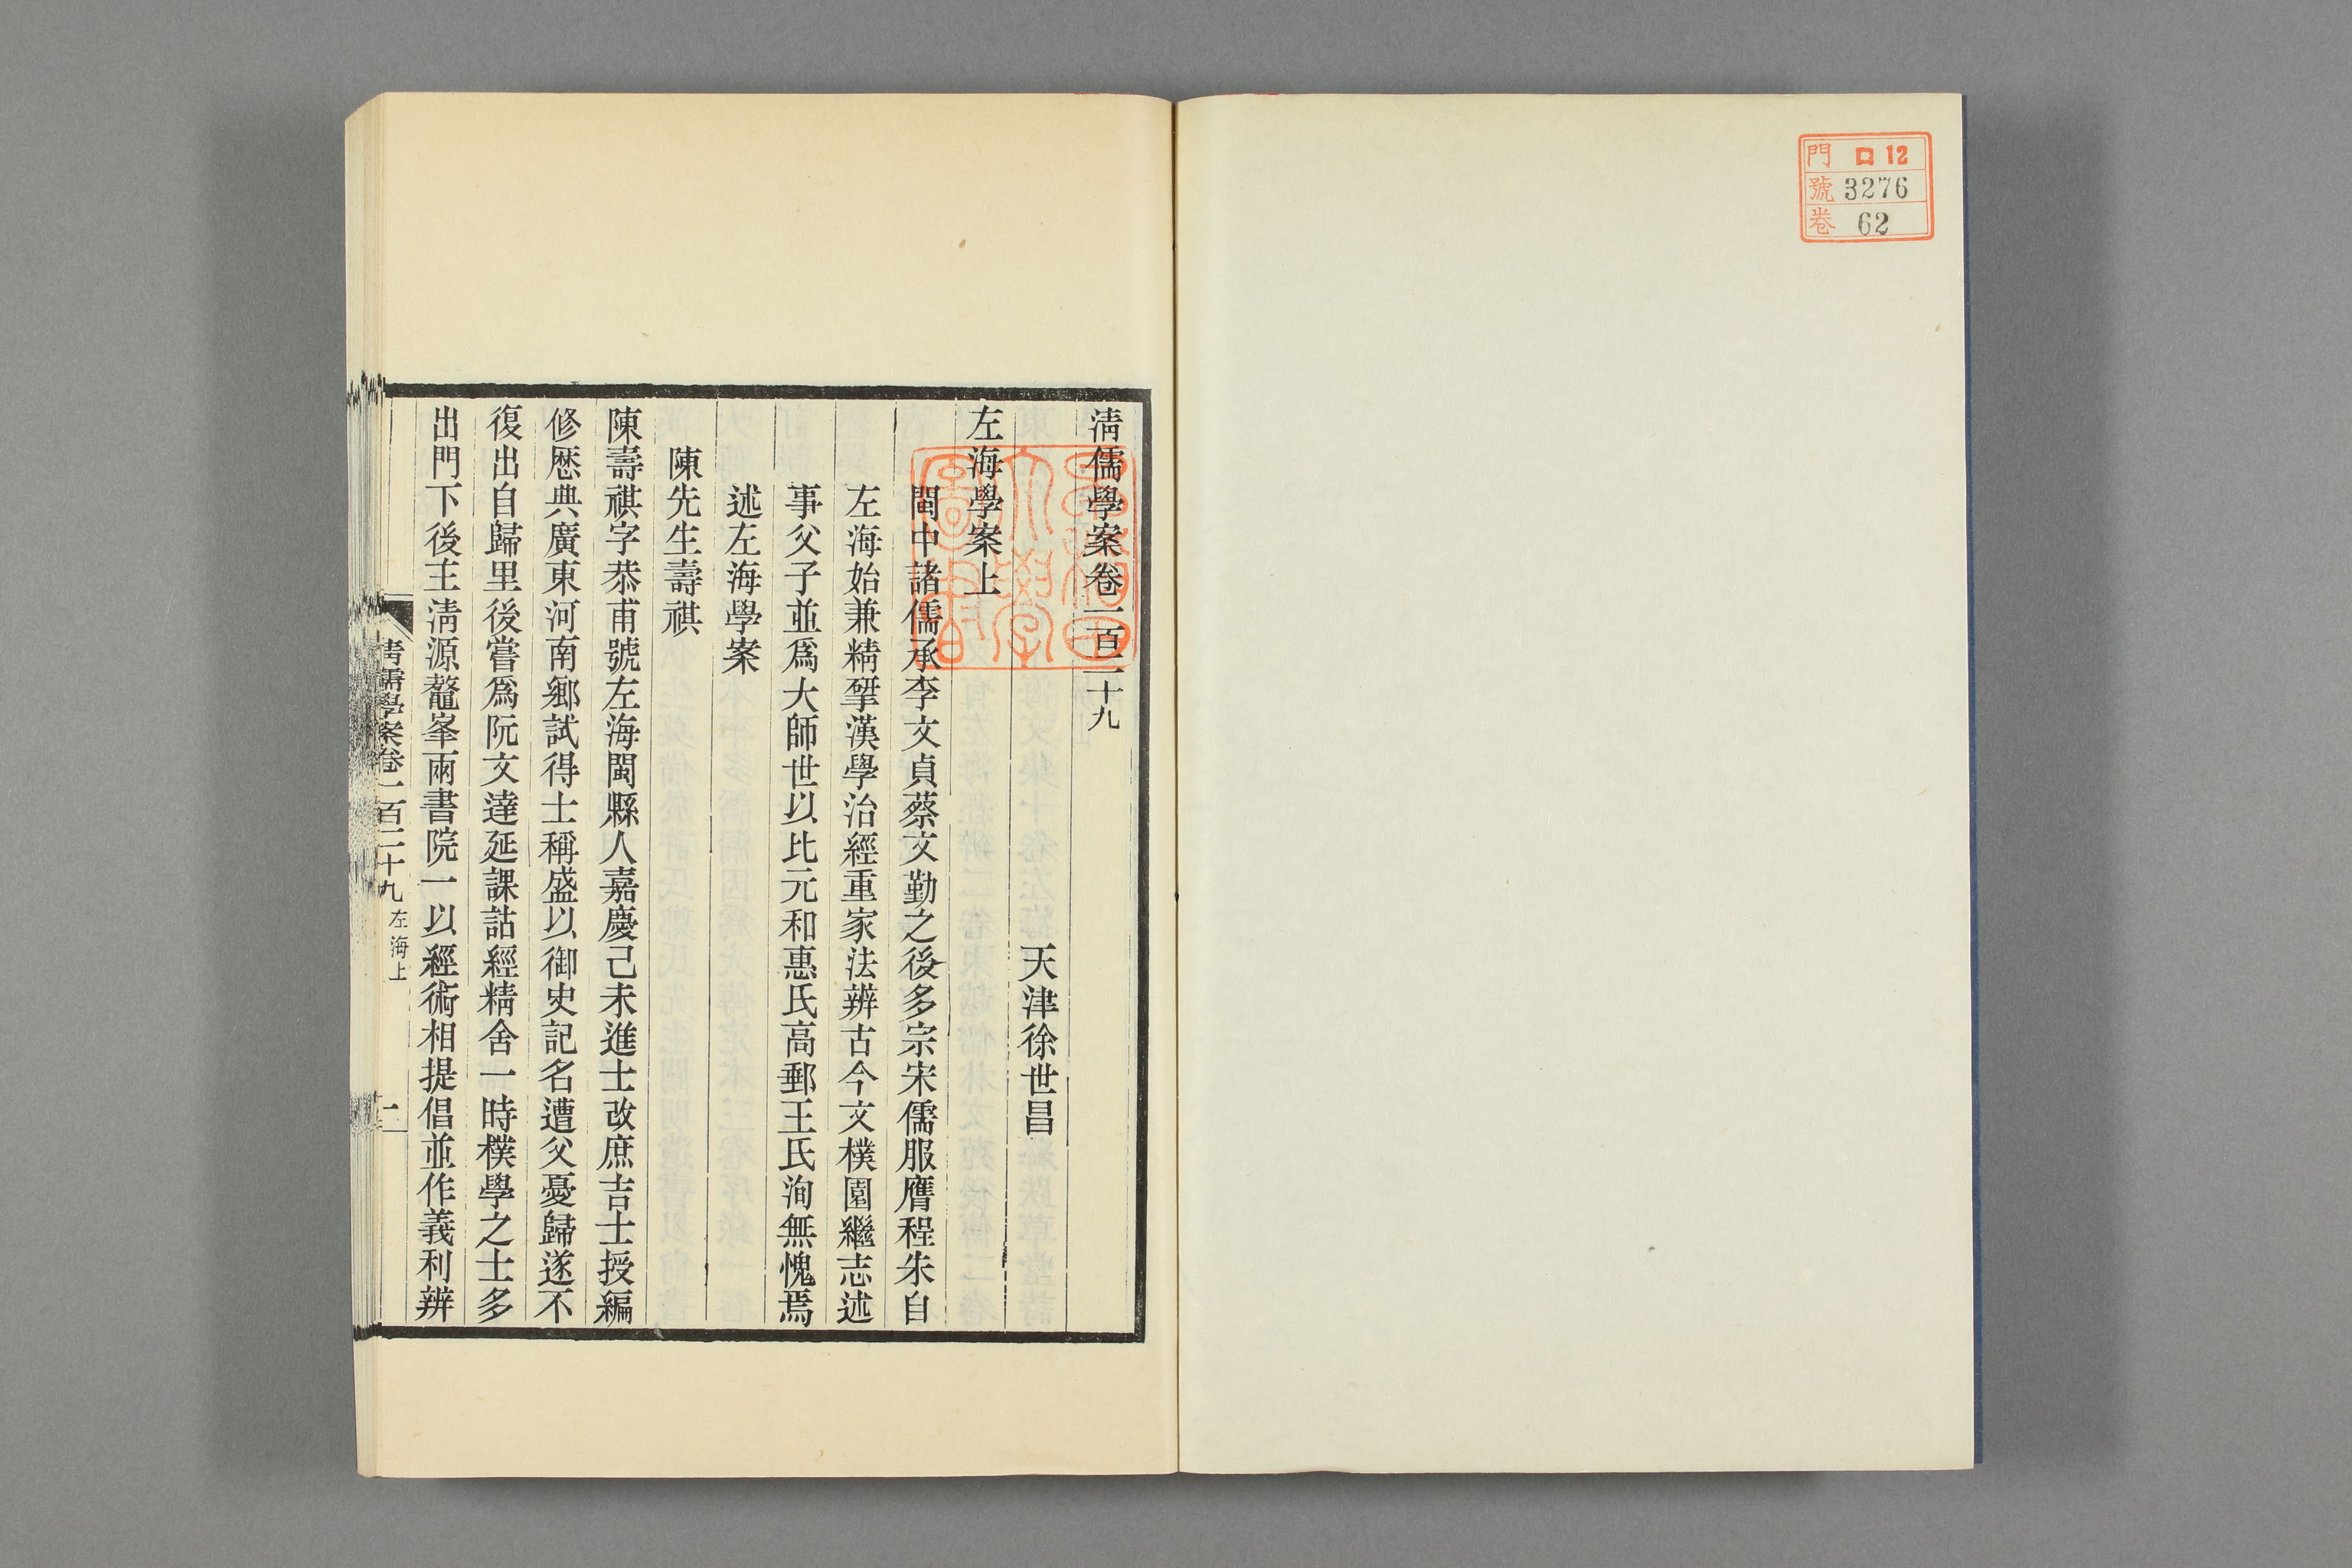 門 ロ 12
號 3276
卷 62
清儒學案卷一百二十九
天津徐世昌
左海學案上
閩中諸儒承李文貞蔡文勤之後多宗宋儒服膺程朱自
左海始兼精揅漢學治經重家法辨古今文樸園繼志述
事父子並爲大師世以比元和惠氏高郵王氏洵無愧焉
述左海學案
陳先生壽祺
陳壽祺字恭甫號左海閩縣人嘉慶己未進士改庶吉士授編
修歷典廣東河南鄉試得士稱盛以御史記名遭父憂歸遂不
復出自歸里後嘗爲阮文達延課詁經精舍一時樸學之士多
出門下後主清源鼇峯兩書院一以經術相提倡並作義利辨
清儒學案卷一百二十九 左海上
一
早稻田大學圖書